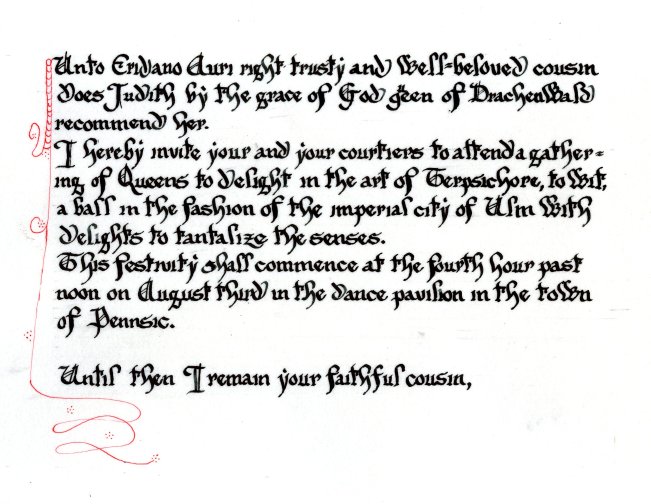 Unto Eridano Auri right trusty and well=beloved cousin
does Judith by the grace of God queen of Drachenwald
recommend her.
I hereby invite your and your courtiers to attend a gather=
ing of Queens to delight in the art of Terpsichore, to wit,
a ball in the fashion of the imperial city of Ulm with
delights to tantalize the senses.
This festivity shall commence at the fourth hour past
noon on August third in the dance pavilion in the town
of Pennsic.
Until then I remain your faithful cousin,